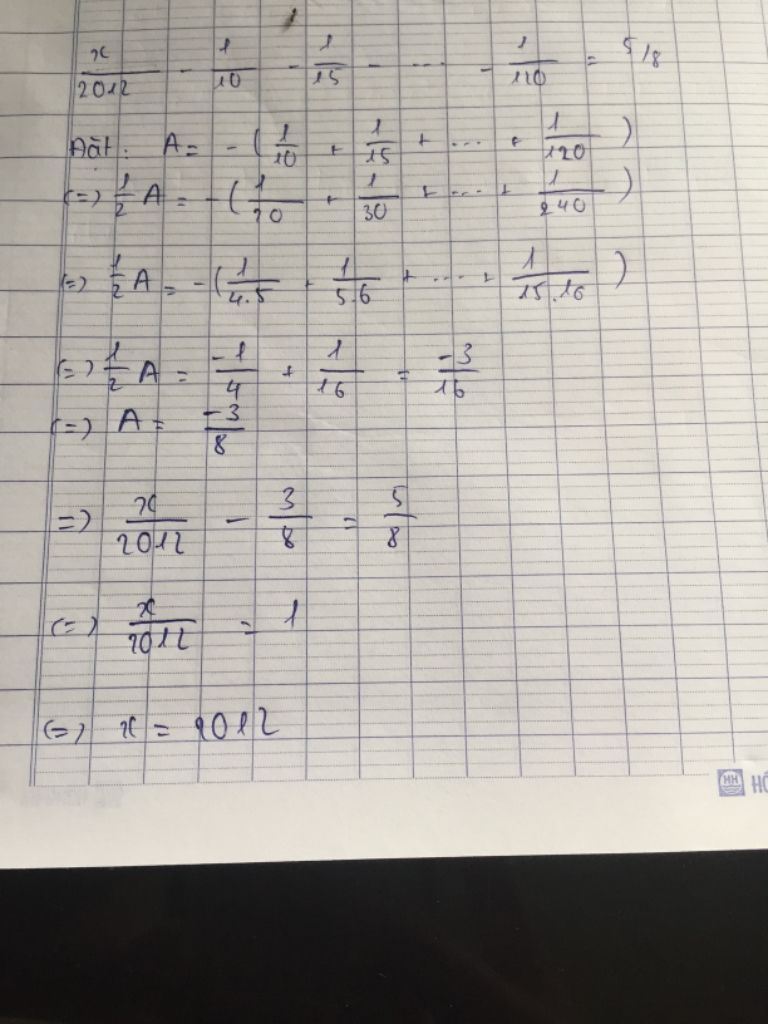 x/2012 - 1/10 - 1/15 - ... - 1/120 = 5/8
Đặt: A = -(1/10 + 1/15 + ... + 1/120)
(=) 1/2 A = -(1/20 + 1/30 + ... + 1/240)
(=) 1/2 A = -(1/4.5 + 1/5.6 + ... + 1/15.16)
(=) 1/2 A = -1/4 + 1/16 = -3/16
(=) A = -3/8
=) x/2012 - 3/8 = 5/8
(=) x/2012 = 1
(=) x = 2012
HH HỒ